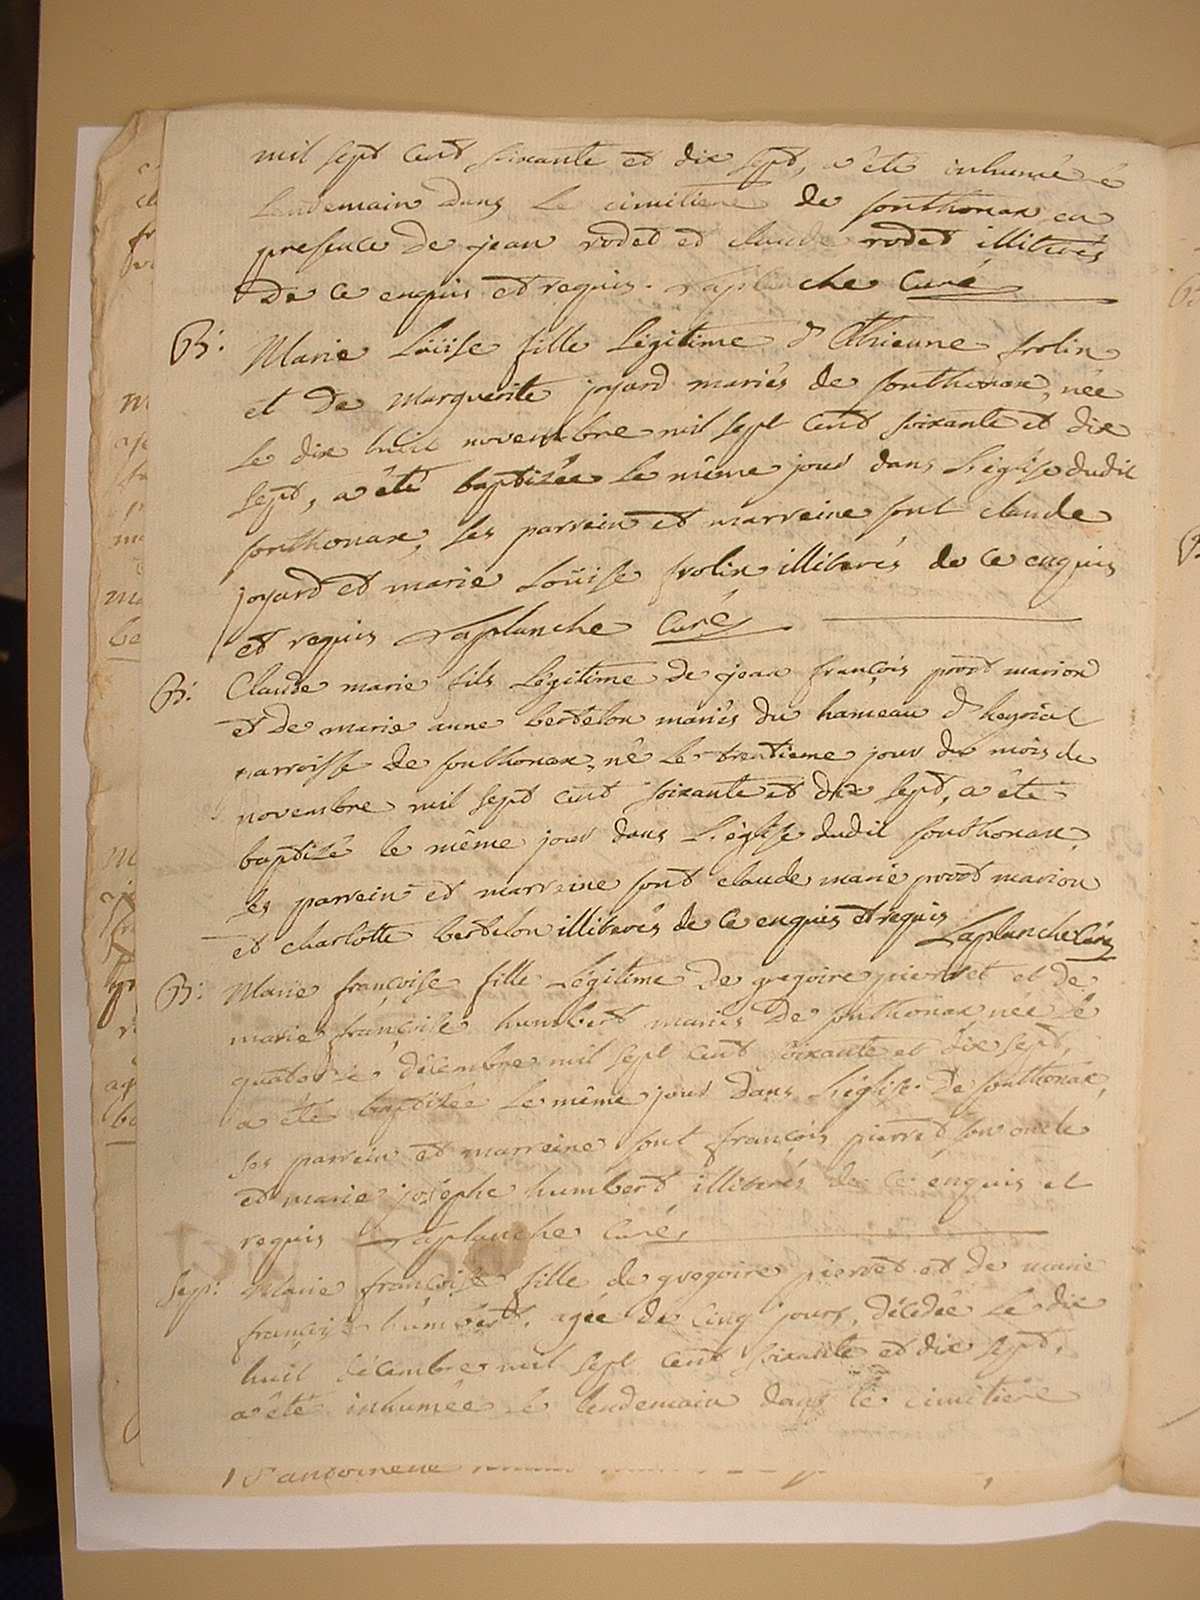 mil sept cent soixante et dix sept, a été inhumé le
lendemain dans le cimitiere de sonthonax en
presence de jean rodet et claude rodet illiterés
de ce enquis et requis. Laplanche Curé
B: Marie Loüise fille Légitime d'Ethienne frolin
et de Marguerite joyard mariés de sonthonax, née
le dix huit novembre mil sept cent soixante et dix
sept, a été baptisée le même jour dans L'église dudit
sonthonax, ses parrein et marreine sont claude
joyard et marie Loüise frolin illiterés de ce enquis
et requis Laplanche Curé
B: Claude marie fils Légitime de jean françois provt marion
et de marie anne bertelon mariés du hameau d'heyriat
parroisse de sonthonax, né le trentieme jour du mois de
novembre mil sept cent soixante et dix sept, a été
baptisé le même jour dans L'église dudit sonthonax,
ses parrein et marreine sont claude marie provt marion
et charlotte bertelon illiterés de ce enquis et requis Laplanche Curé
B: Marie françoise fille Légitime de gregoire pierret et de
marie françoise humbert mariés de sonthonax née le
quatorze décembre mil sept cent soixante et dix sept,
a été baptisée le même jour dans L'église de sonthonax,
ses parrein et marreine sont françois pierret son oncle
et marie josephe humbert illiterés de ce enquis et
requis Laplanche Curé,
Sep: Marie françoise fille de gregoire pierret et de marie
françoise humbert, agée de cinq jours, décédée le dix
huit décembre mil sept cent soixante et dix sept,
a été inhumée le lendemain dans le cimitière